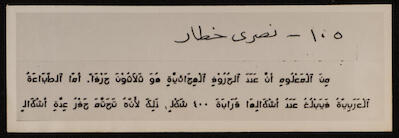 ١٠٥ - نصري خطار
من المعلوم ان عدد الحروف الهجائية هو ثلاثون حرفا. اما الطباعة
العربية فيبلغ عدد اشكالها قرابة ٤٠٠ شكل، ذلك لأنه تحتم حفر عدة اشكال